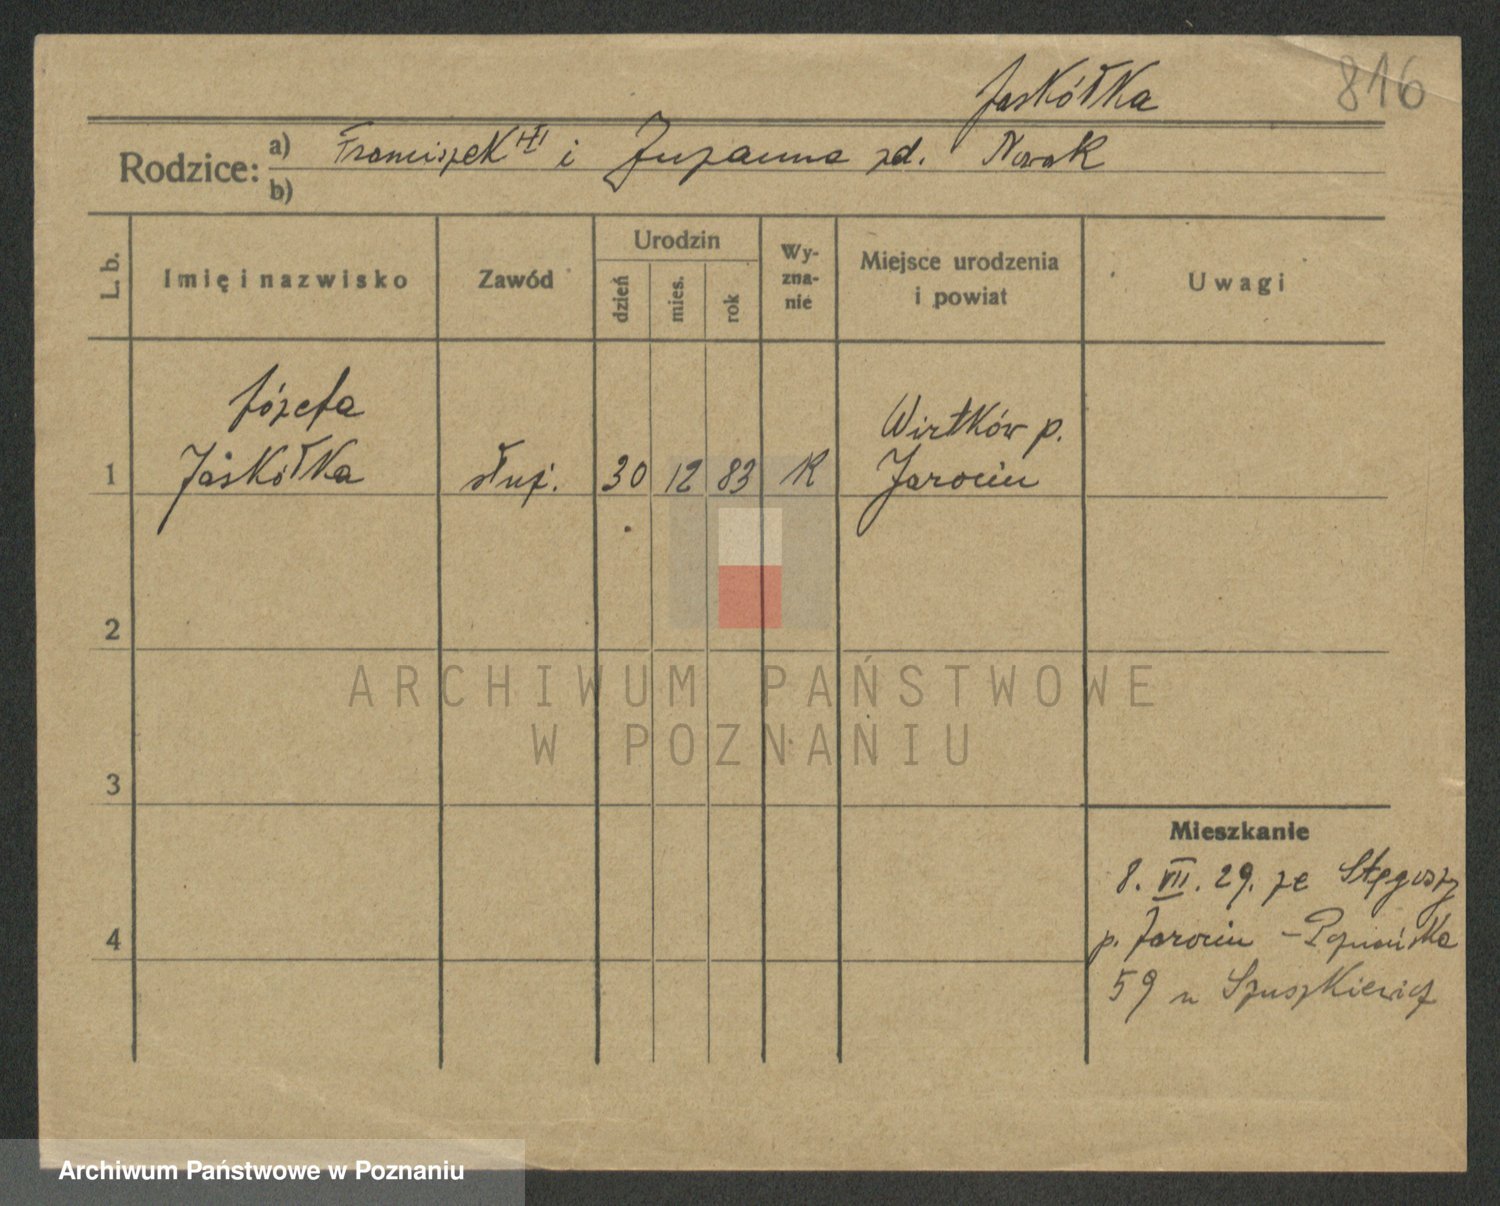 816
Jaskółka
Rodzice: a) Franciszek i Zuzanna zd. Nowak
b)
L. b.
Imię i nazwisko
Zawód
Urodzin
dzień
mies.
rok
Wy-
zna-
nie
Miejsce urodzenia
i powiat
Uwagi
Józefa
Jaskółka
1
służ.
30
12
83
K
p.
Jarocin
2
3
4
ARCHIWUM PAŃSTWOWE
W POZNANIU
Mieszkanie
8. VII. 29. ze Stęgoszy
p. Jarocin - Poznańska
59 u Szuszkiewicz
Archiwum Państwowe w Poznaniu